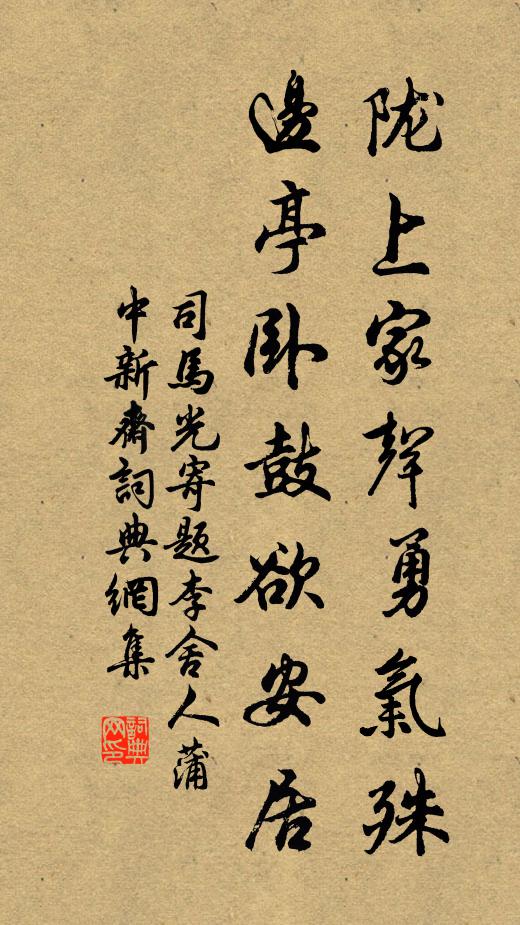 陇上家聲勇氣殊
邊亭卧鼓欲安居
司馬光寄题李舍人蒲
中新齋詞典網集
詞典网印